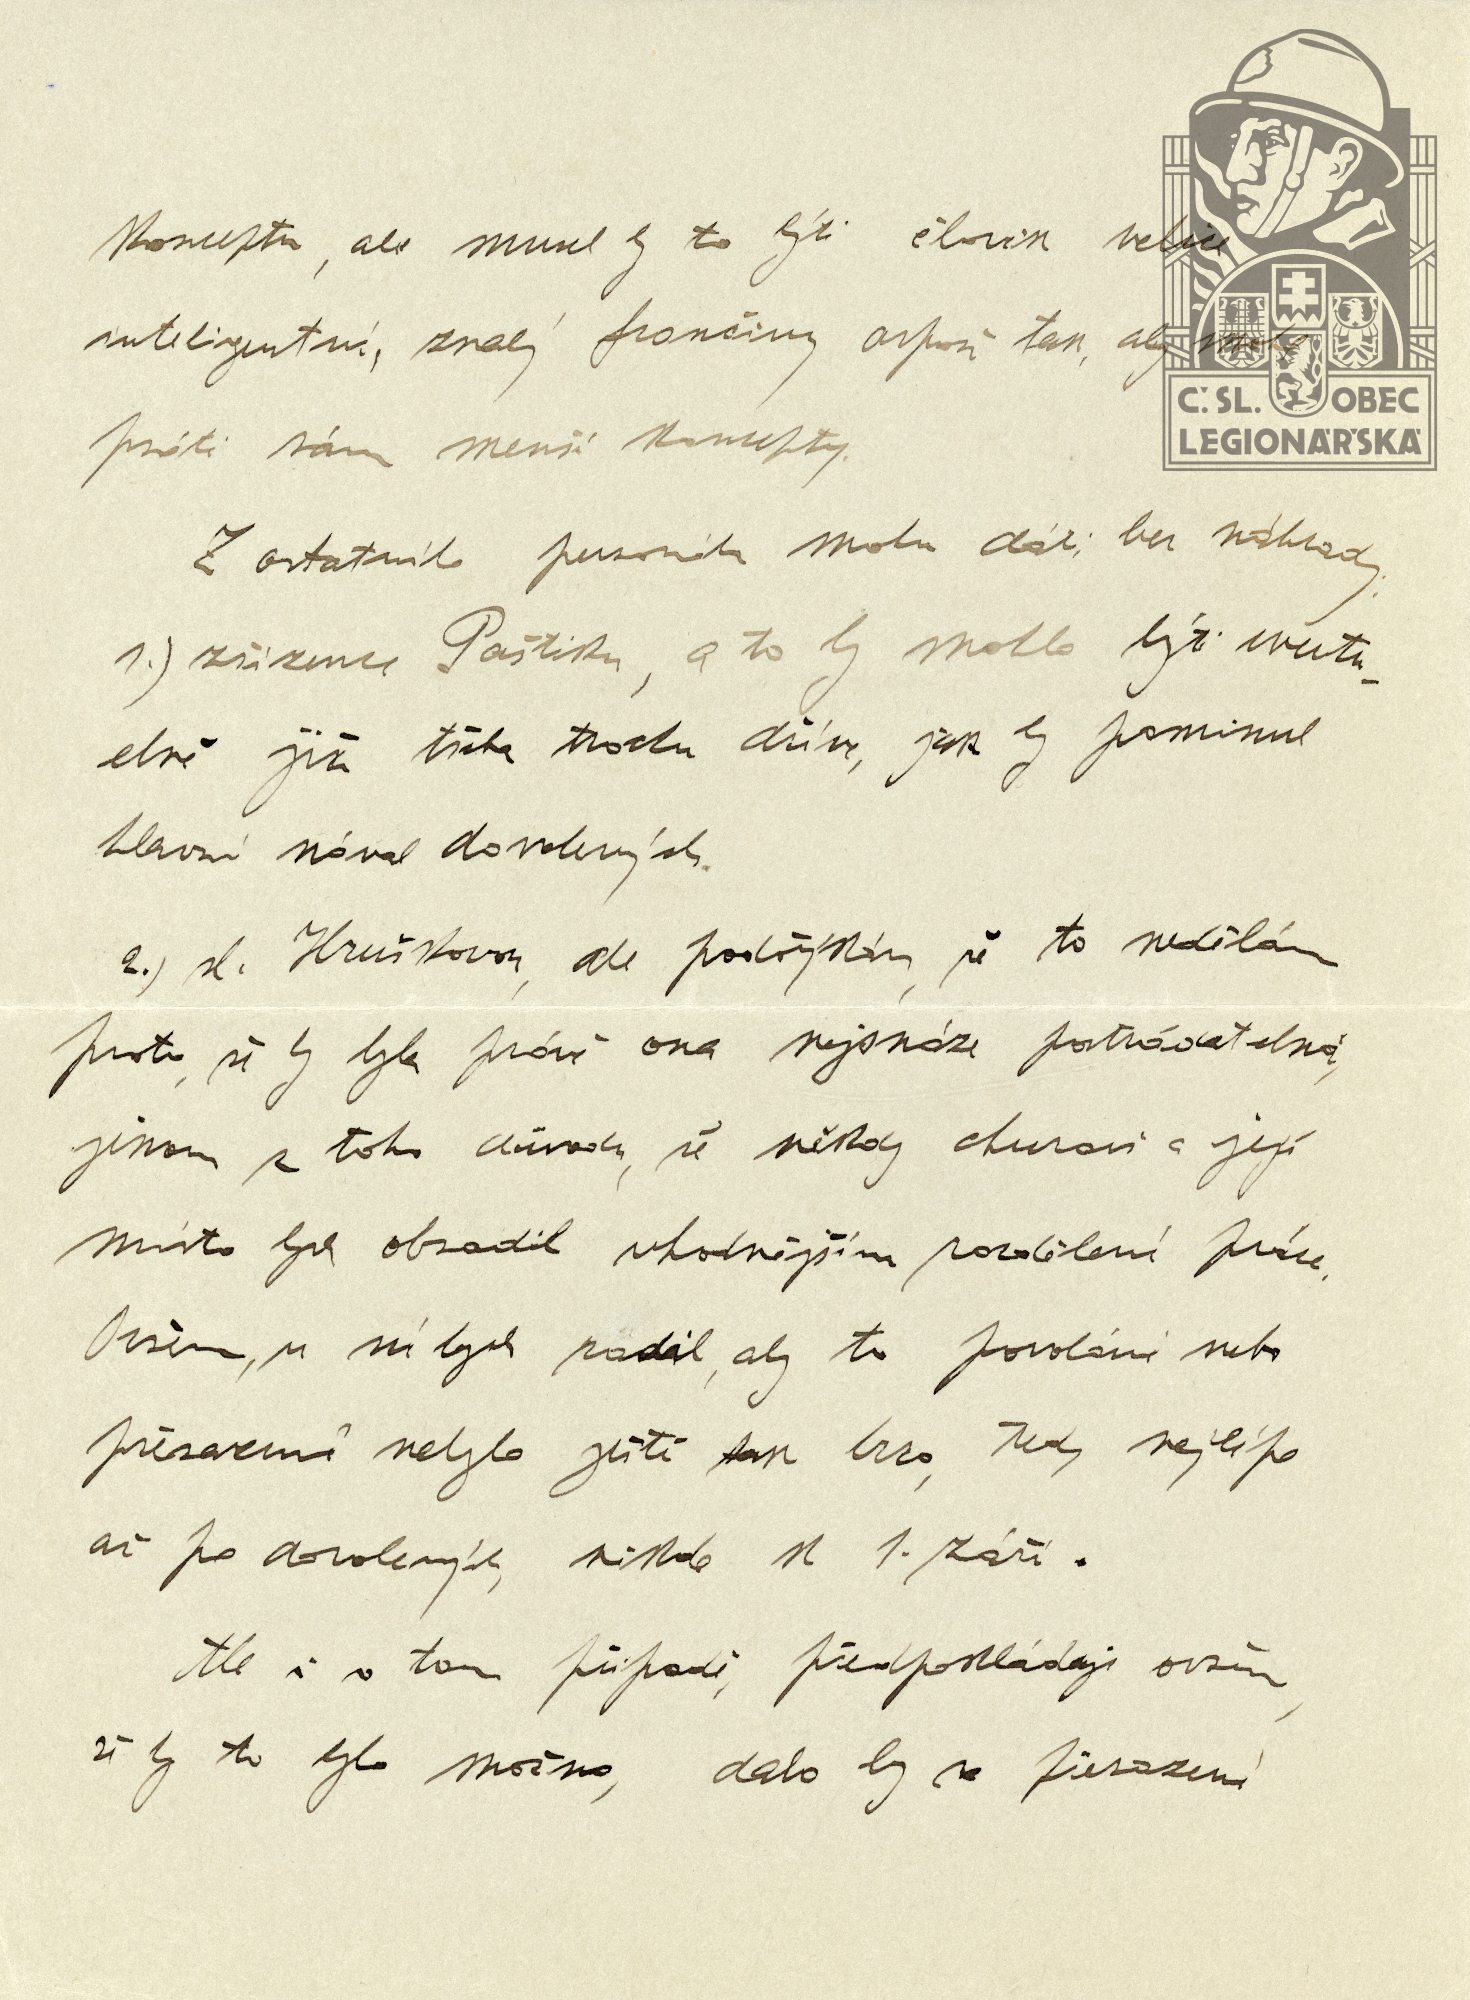 Č.SL. OBEC
LEGIONÁŘSKÁ
konceptu, ale musel by to býti člověk velice
inteligentní, znalý frančiny aspoň tak, aby mohl
psáti sám menší koncepty.
Z ostatního personálu mohu dáti bez náhrady:
1.) zřízence Paštiku, a to by mohlo býti eventu-
elně již třeba trochu dříve, jak by pominul
hlavní nával dovolených.
2.) sl. Hruškovou, ale podotýkám, že to nedělám
proto, že by byla právě ona nejsnáze postrádatelná,
jenom z toho důvodu, že někdy churaví a její
místo bych obsadil vhodnějším rozdělení práce.
Ovšem, u ní bych radil, aby to povolání nebo
přeřazení nebylo ještě tak brzo, tedy nejlépe
až po dovolených, někde k 1. září.
Ale i v tom případě, předpokládaje ovšem,
že by to bylo možno, dalo by se přeřazení